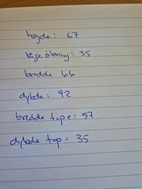 høyde: 67
lege åpning: 35
bredde 66
dybde: 92
bredde topp: 57
dybde topp: 35